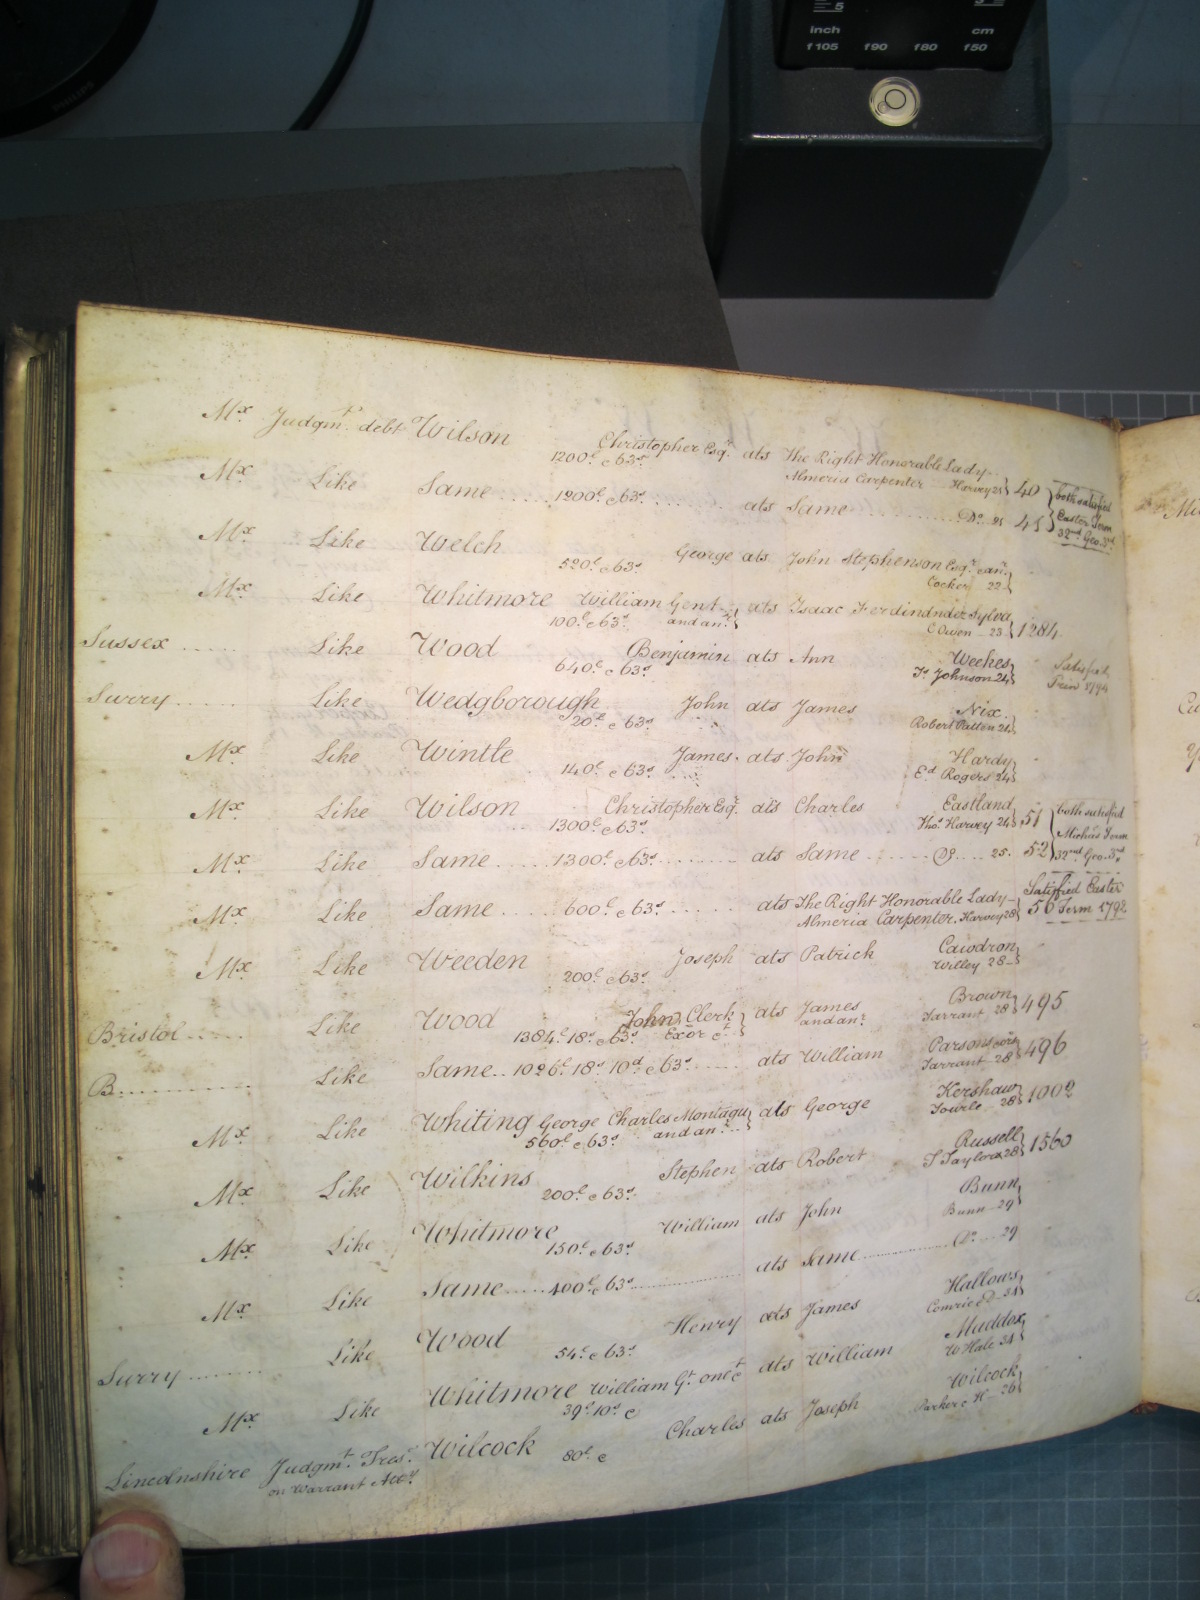 5
inch cm
f105 f90 f80 f50
Mx Judgmt. debt Wilson Christopher Esqr. ats The Right Honorable Lady
1200£ c 63s Almeria Carpenter Harvey 21 } 40 } both satisfied
Mx Like Same ..... 1200£ c 63s ....... ats Same ........ Do. 21 41 Easter Term
32nd Geo. 3rd
Mx Like Welch George ats John Stephenson Esqr. anr.
520£ c 63s Cocker 22
Mx Like Whitmore William Gent. ats Isaac Ferdindndez Sylva
100£ c 63s and anr. C Owen 23 } 1284
Sussex ..... Like Wood Benjamin ats Ann Weekes Satisfied
640£ c 63s Js Johnson 24 Trin 1794
Surry ..... Like Wedgborough John ats James Nix
20£ c 63s Robert Patten 24
Mx Like Wintle James ats John Hardy
140£ c 63s Ed Rogers 24
Mx Like Wilson Christopher Esqr. ats Charles Eastland
1300£ c 63s Thos. Harvey 24 } 51 } both satisfied
Michas Term
Mx Like Same .... 1300£ c 63s ........ ats Same ...... Do .... 25. 52 32nd Geo. 3rd
Mx Like Same ..... 600£ c 63s ...... ats The Right Honorable Lady Satisfied Easter
Almeria Carpenter. Harvey 28 } 50 Term 1792
Mx Like Weeden Joseph ats Patrick Cawdron
200£ c 63s Willey 28
Bristol ..... Like Wood John Clerk ats James Brown
1384£ 18s c 63s Exor ct and anr. Tarrant 28 } 495
B........... Like Same .. 1026£ 18s 10d c 63s ...... ats William Parsons
Tarrant 28 } 496
Mx Like Whiting George Charles Montagu ats George Kershaw
560£ c 63s and anr. Tourle 28 } 1002
Mx Like Wilkins Stephen ats Robert Russell
200£ c 63s T Taylor 28 } 1560
Mx Like Whitmore William ats John Bunn
150£ c 63s Bunn 29
Mx Like Same ..... 400£ c 63s ........ ats Same ........ Do .... 29
Surry ...... Like Wood Henry ats James Hallows
54£ c 63s Comrie 31
Mx Like Whitmore William Gt. one ct ats William Maddox
39£ 10s c W Hale 31
Lincolnshire Judgmt. Tres. Wilcock Charles ats Joseph Wilcock
on Warrant Atty 80£ c Parker c H 26